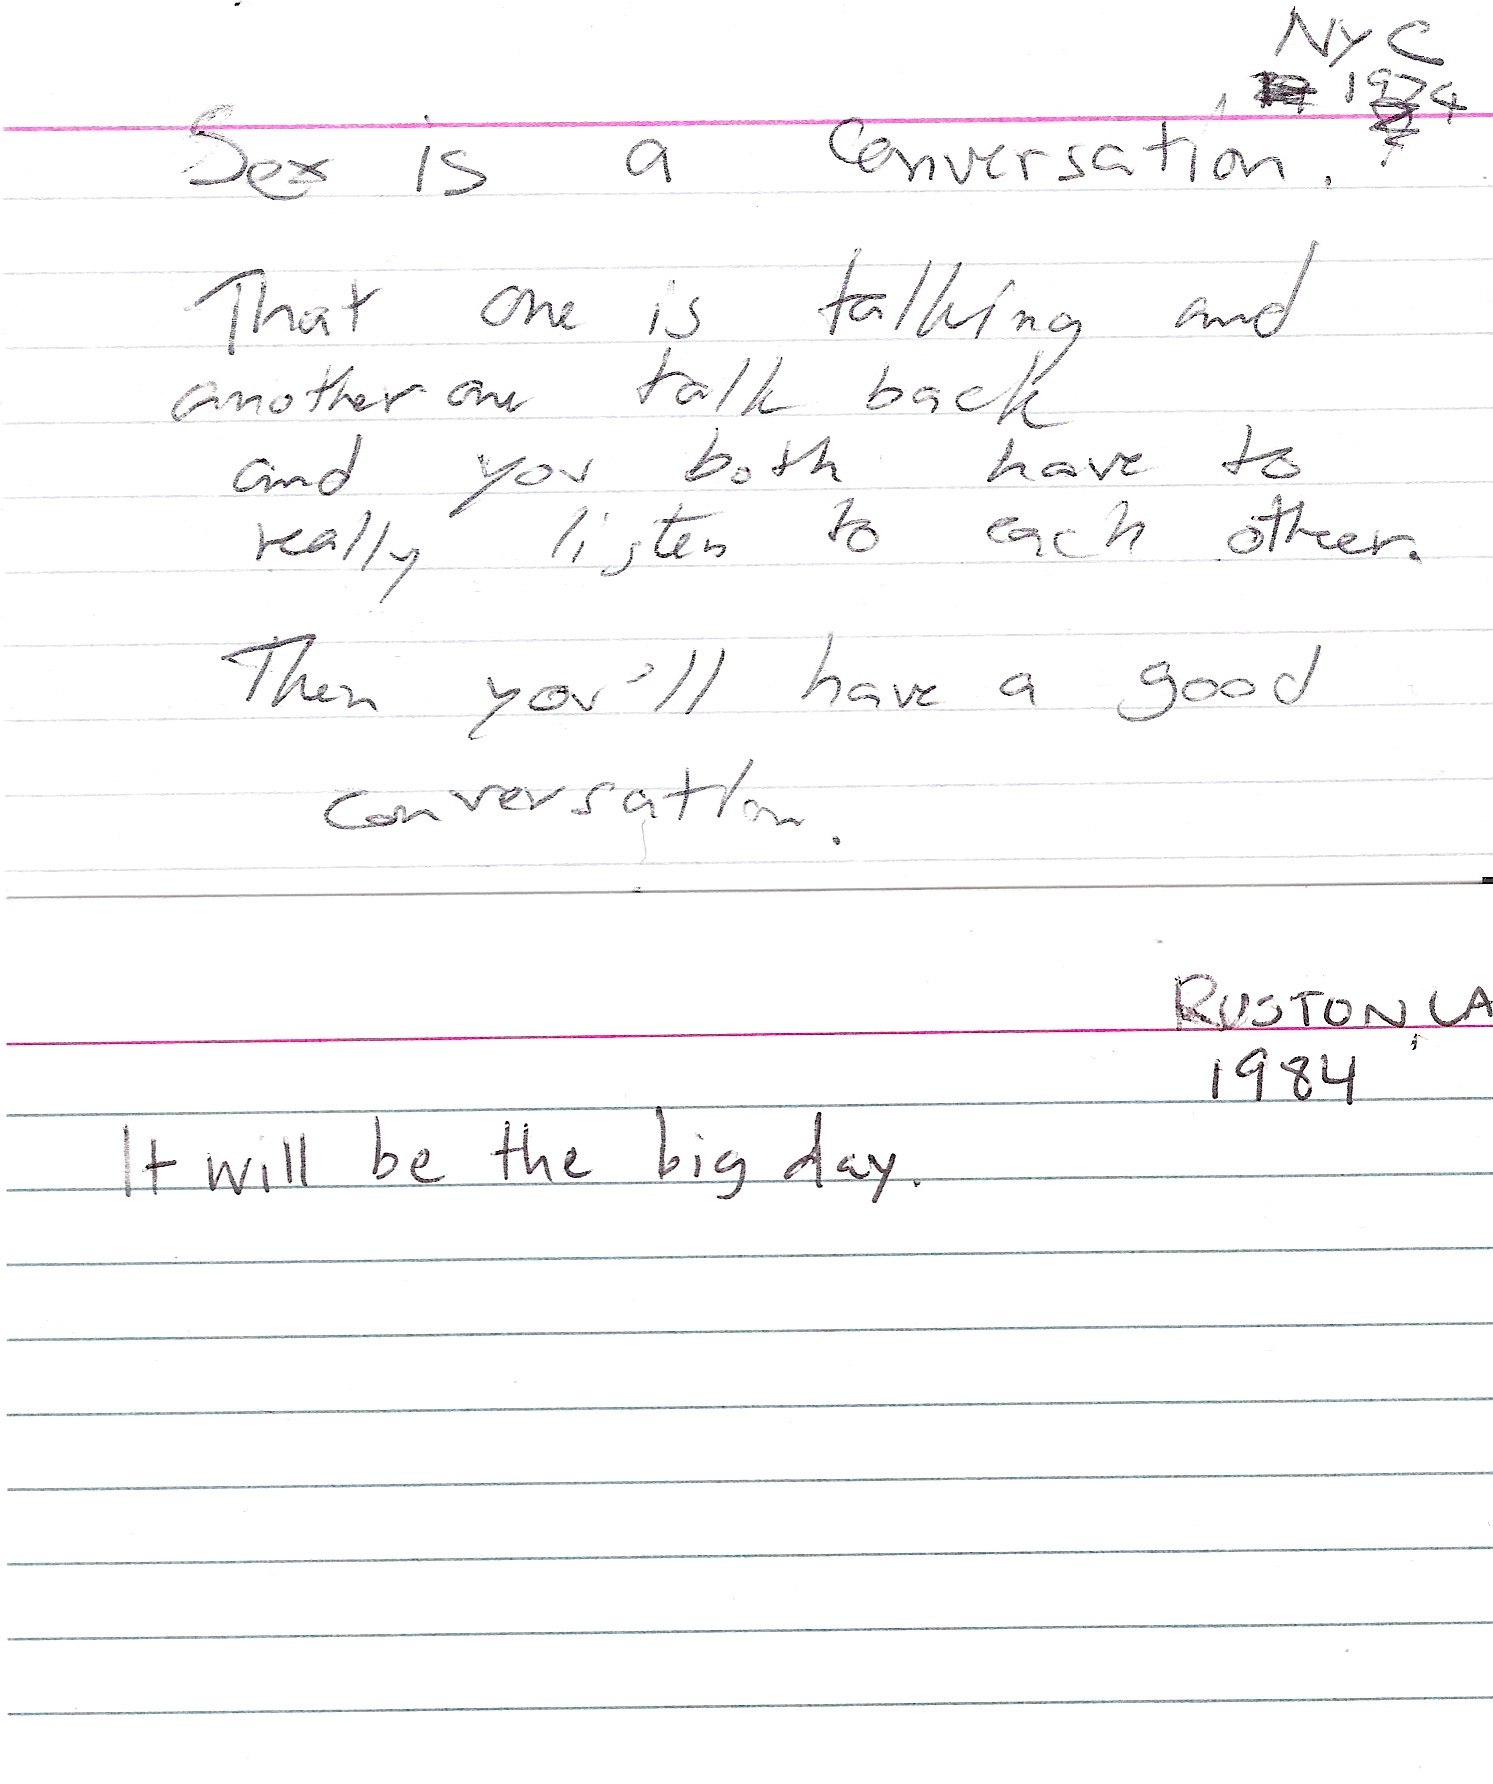 NYC
1974
Sex is a conversation.
That one is talking and
another one talk back
and you both have to
really listen to each otheer.
Then you'll have a good
conversation.
RUSTON, LA
1984
It will be the big day.